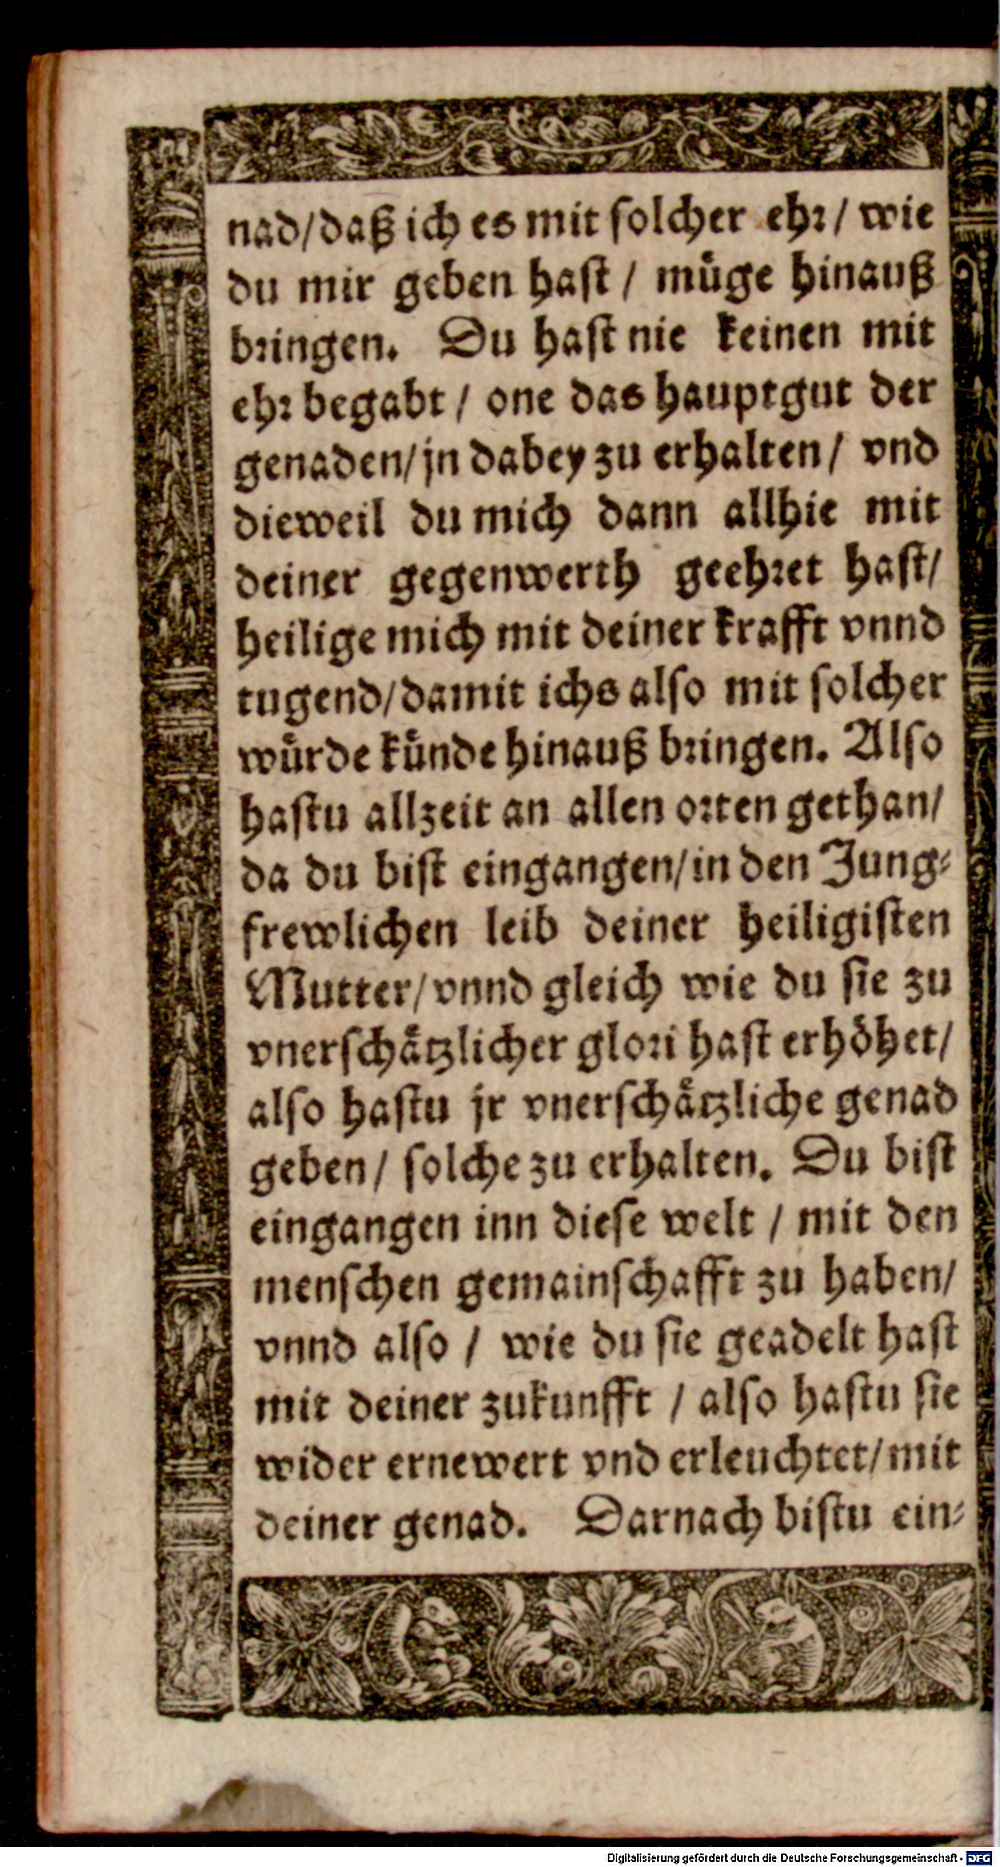 nad/daß ich es mit solcher ehr/ wie
du mir geben hast / müge hinauß
bringen. Du hast nie keinen mit
ehr begabt / one das hauptgut der
genaden/jn dabey zu erhalten/ vnd
dieweil du mich dann allhie mit
deiner gegenwerth geehret hast/
heilige mich mit deiner krafft vnnd
tugend/damit ichs also mit solcher
würde künde hinauß bringen. Also
hastu allzeit an allen orten gethan/
da du bist eingangen/in den Jung-
frewlichen leib deiner heiligisten
Mutter/vnnd gleich wie du sie zu
vnerschätzlicher glori hast erhöhet/
also hastu jr vnerschätzliche genad
geben/ solche zu erhalten. Du bist
eingangen inn diese welt / mit den
menschen gemainschafft zu haben/
vnnd also / wie du sie geadelt hast
mit deiner zukunfft / also hastu sie
wider ernewert vnd erleuchtet/mit
deiner genad. Darnach bistu ein-
Digitalisierung gefördert durch die Deutsche Forschungsgemeinschaft - DFG